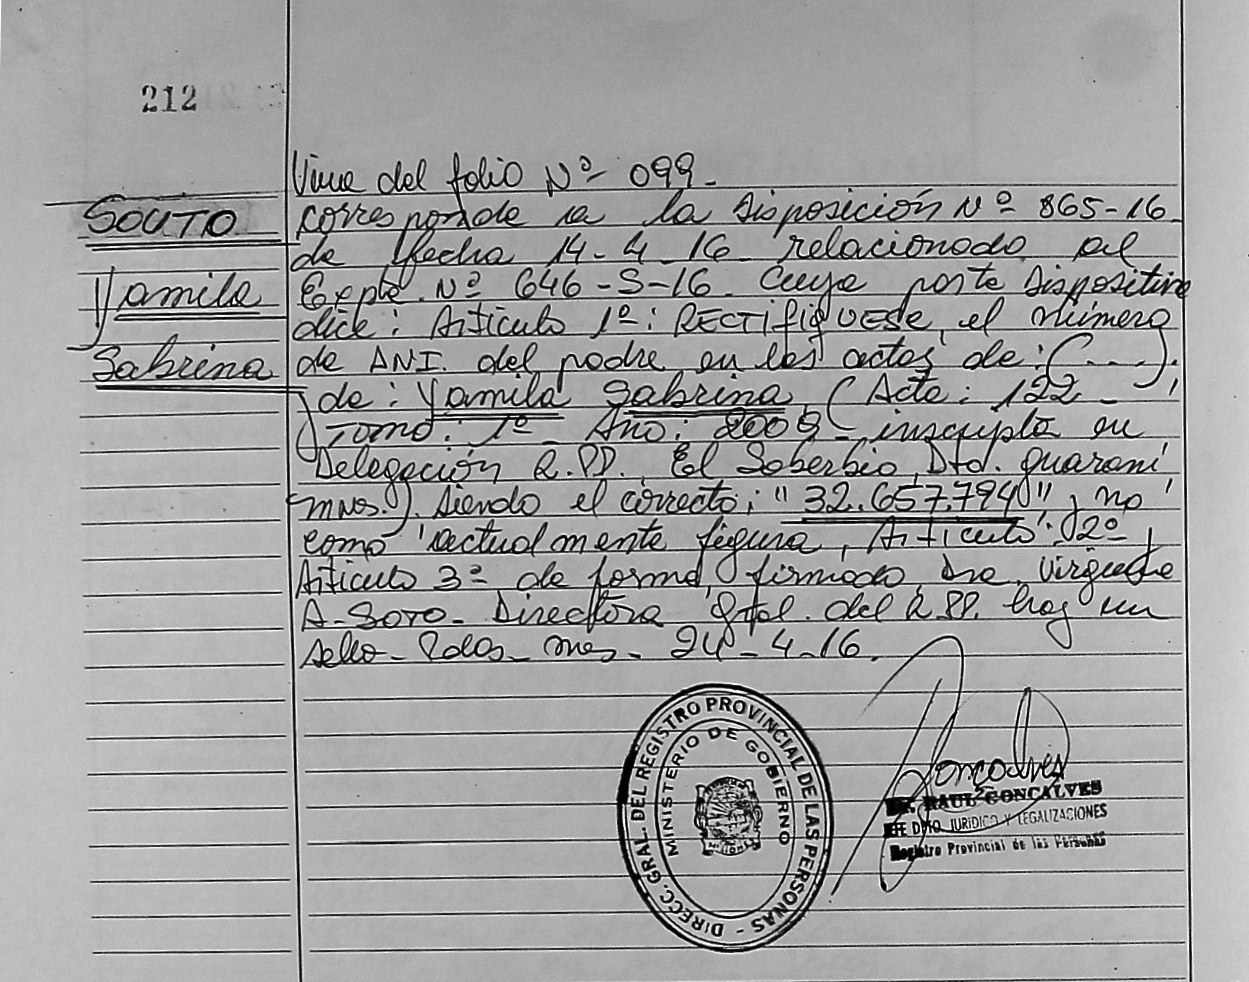 212
SOUTO
Yamila
Sabrina
Viene del folio Nº 099.
corresponde a la Disposición Nº 865-16
de fecha 14-4-16 relacionado al
Expte. Nº 646-S-16. Cuya parte Dispositiva
dice: Articulo 1º: RECTIFIQUESE, el número
de DNI. del padre en las actas de: (....).
de: Yamila Sabrina (Acta: 122 -
Tomo: 1º - Año: 2009 - inscripta en
Delegación R.PP. El Soberbio, Dto. guarani
mnes.). Siendo el correcto: "32.657.794", no
como actualmente figura, Articulo: 2º,
Articulo 3º de forma, firmado, Dra.
A. Soto - Directora Gral. del R.PP. hay un
sello - Pdas. mnes. 24-4-16.
DIRECC. GRAL. DEL REGISTRO PROVINCIAL DE LAS PERSONAS -
MINISTERIO DE GOBIERNO
Goncalves
DR. RAUL GONCALVES
JEFE DPTO. JURIDICO Y LEGALIZACIONES
Registro Provincial de las Personas